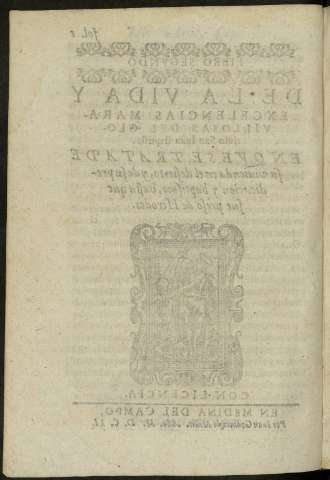 LIBRO SEGVNDO
DE LA VIDA Y
EXCELENCIAS MARA-
VILLOSAS DEL GLO-
rioso San Iuan Baptista.
EN QVE SE TRATA DE
su vivienda en el desierto, y de su pre-
dicacion y baptismo, hasta que
fue preso de Herodes.
CON LICENCIA.
EN MEDINA DEL CAMPO,
Por Iuan Año. M. D. C. II.